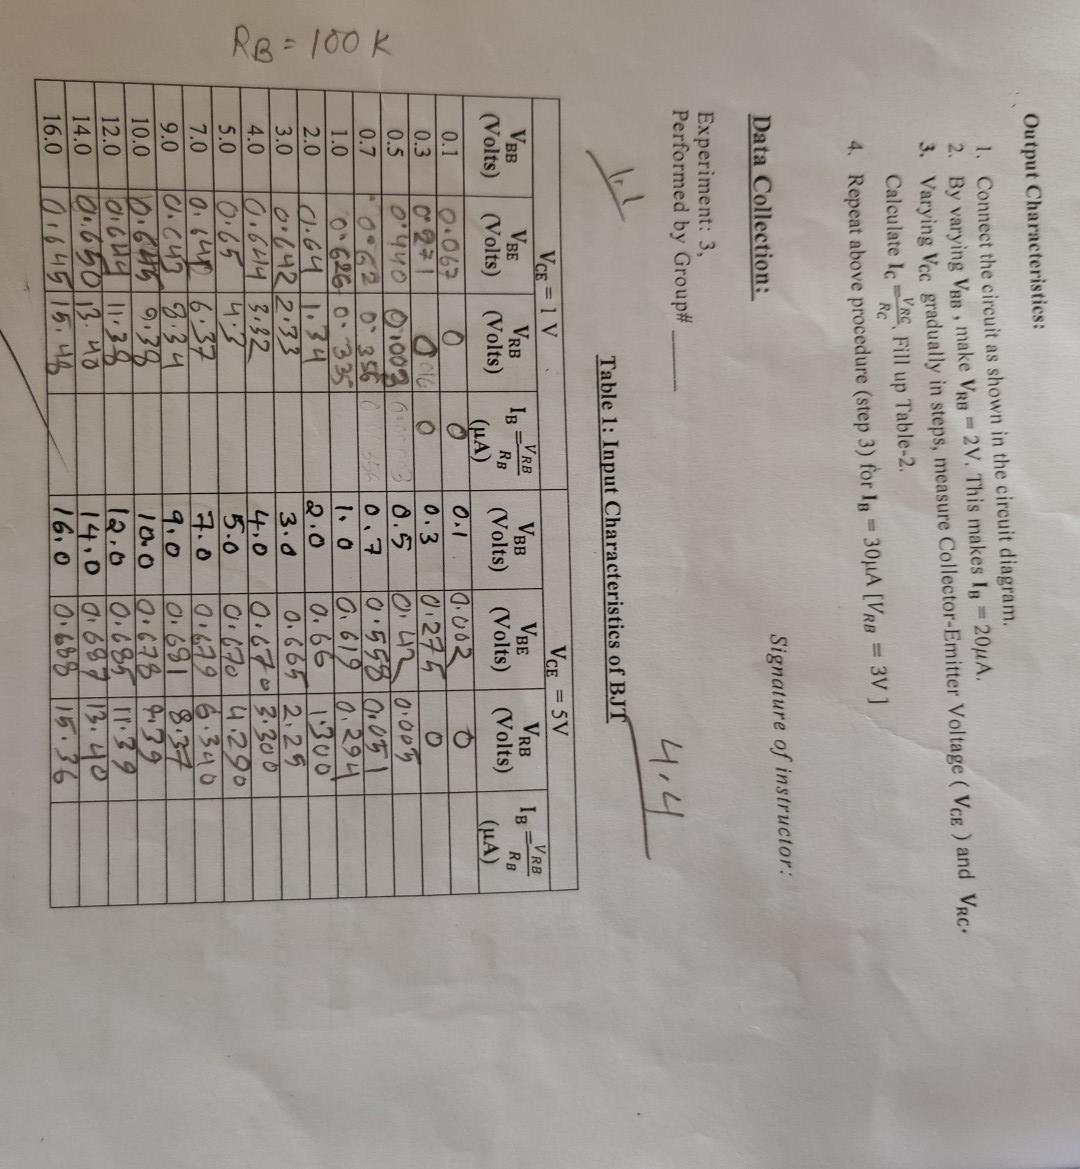 Output Characteristics:
1. Connect the circuit as shown in the circuit diagram.
2. By varying VBB , make VRB = 2V. This makes IB = 20μA.
3. Varying VCC gradually in steps, measure Collector-Emitter Voltage ( VCE ) and VRC.
Calculate IC = VRC/RC. Fill up Table-2.
4. Repeat above procedure (step 3) for IB = 30μA [VRB = 3V ]
Signature of instructor:
Data Collection:
Experiment: 3,
Performed by Group# ____
4.4
Table 1: Input Characteristics of BJT
VCE = 1 V VCE = 5V
VBB (Volts) VBE (Volts) VRB (Volts) IB = VRB/RB (μA) VBB (Volts) VBE (Volts) VRB (Volts) IB = VRB/RB (μA)
0.1 0.067 0 0 0.1 0.002 0
0.3 0.271 0 0 0.3 0.275 0
0.5 0.440 0.003 0.5 0.42 0.005
0.7 0.62 0.356 0.7 0.558 0.051
1.0 0.626 0.335 1.0 0.619 0.294
2.0 0.64 1.34 2.0 0.66 1.300
3.0 0.642 2.33 3.0 0.665 2.25
4.0 0.644 3.32 4.0 0.670 3.300
5.0 0.65 4.3 5.0 0.670 4.290
7.0 0.646 6.37 7.0 0.679 6.340
9.0 0.643 8.34 9.0 0.681 8.37
10.0 0.645 9.38 10.0 0.678 9.39
12.0 0.644 11.38 12.0 0.685 11.39
14.0 0.650 13.40 14.0 0.687 13.40
16.0 0.645 15.48 16.0 0.688 15.36
RB = 100 K